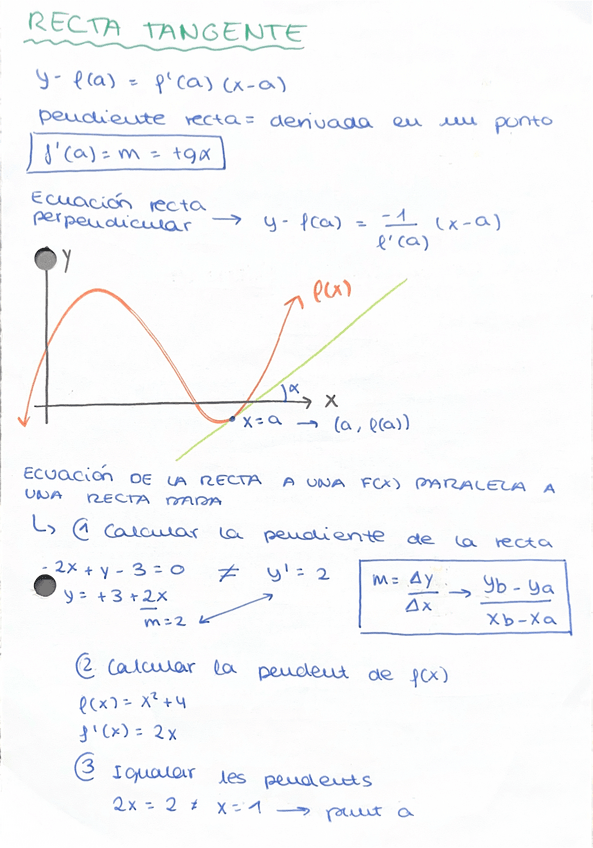 RECTA TANGENTE
y - f(a) = f'(a) (x-a)
pendiente recta = derivada en un punto
f'(a) = m = tg α
Ecuación recta
perpendicular → y - f(a) = -1/f'(a) (x-a)
y
f(x)
α
x
x = a → (a, f(a))
ECUACIÓN DE LA RECTA A UNA F(X) PARALELA A
UNA RECTA DADA
↳ ① Calcular la pendiente de la recta
-2x + y - 3 = 0 ≠ y' = 2
y = +3 + 2x
m = 2
m = Δy/Δx → yb - ya/xb - xa
② Calcular la pendent de f(x)
f(x) = x² + 4
f'(x) = 2x
③ Igualar les pendents
2x = 2 ≠ x = 1 → punt a